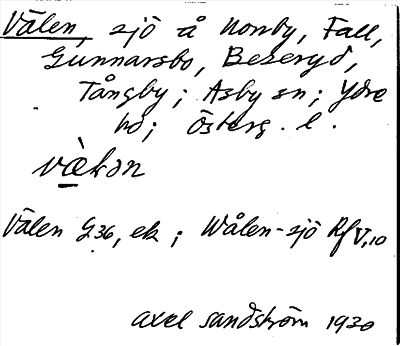 Vålen, sjö å Norrby, Fall,
Gunnarsbo, Bezeryd,
Tångby; Asby sn; Ydre
hd; Österg. l.
Vålen G36, ek; Wålen-sjö Rf V,10
Axel Sandström 1930